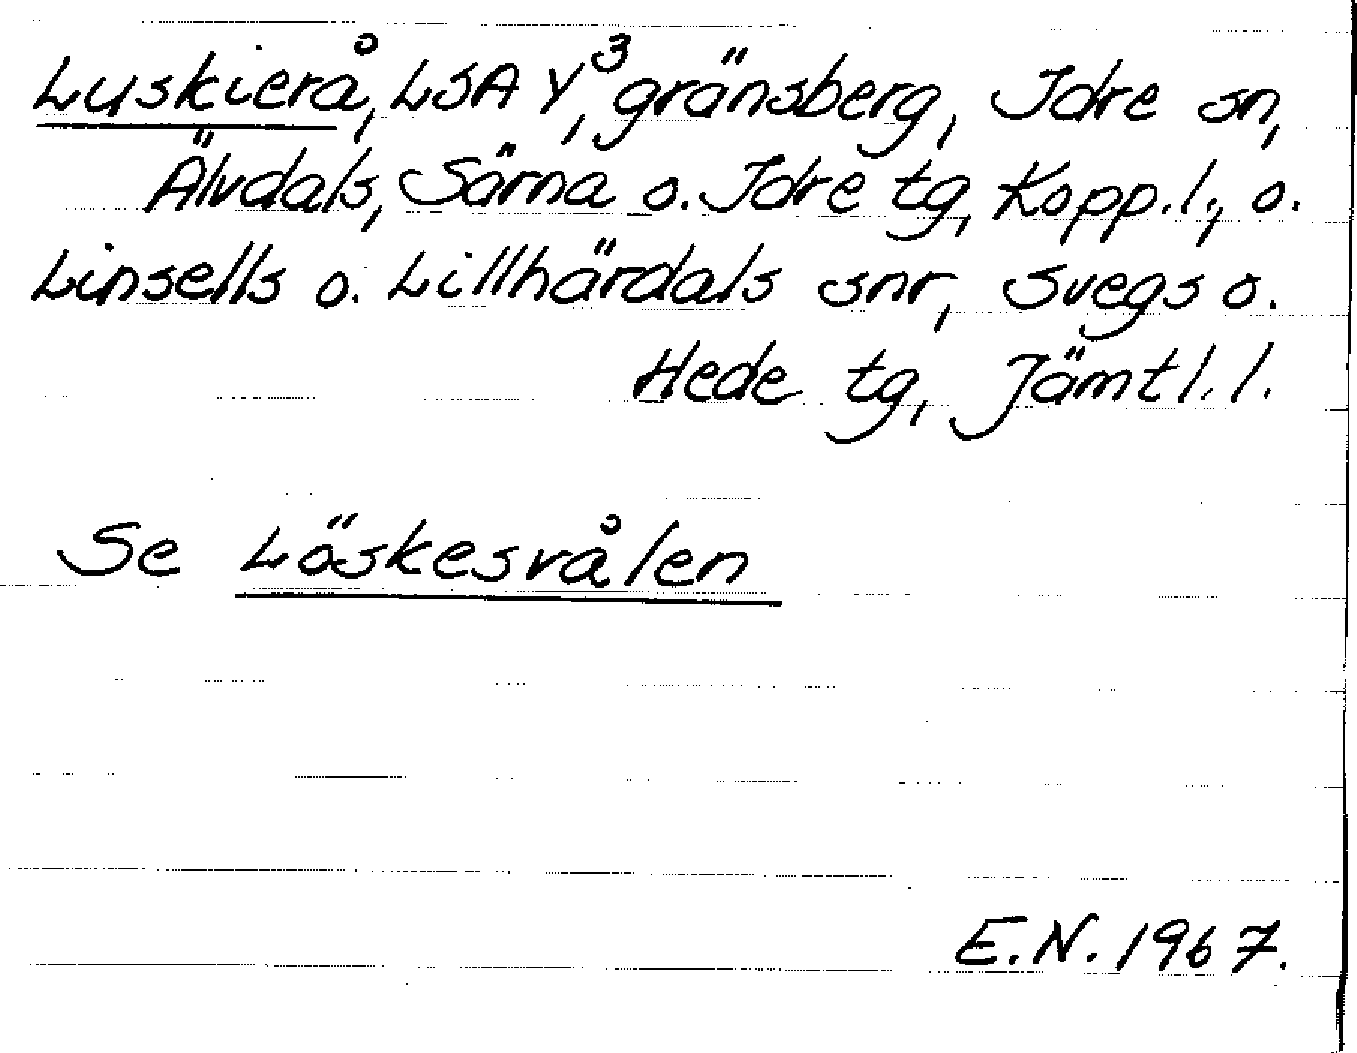 Luskierå, LSA Y³, gränsberg, Idre sn,
Älvdals, Särna o. Idre tg, Kopp.l., o.
Linsells o. Lillhärdals snr, Svegs o.
Hede tg, Jämtl.l.
Se Löskesvålen
E.N. 1967.